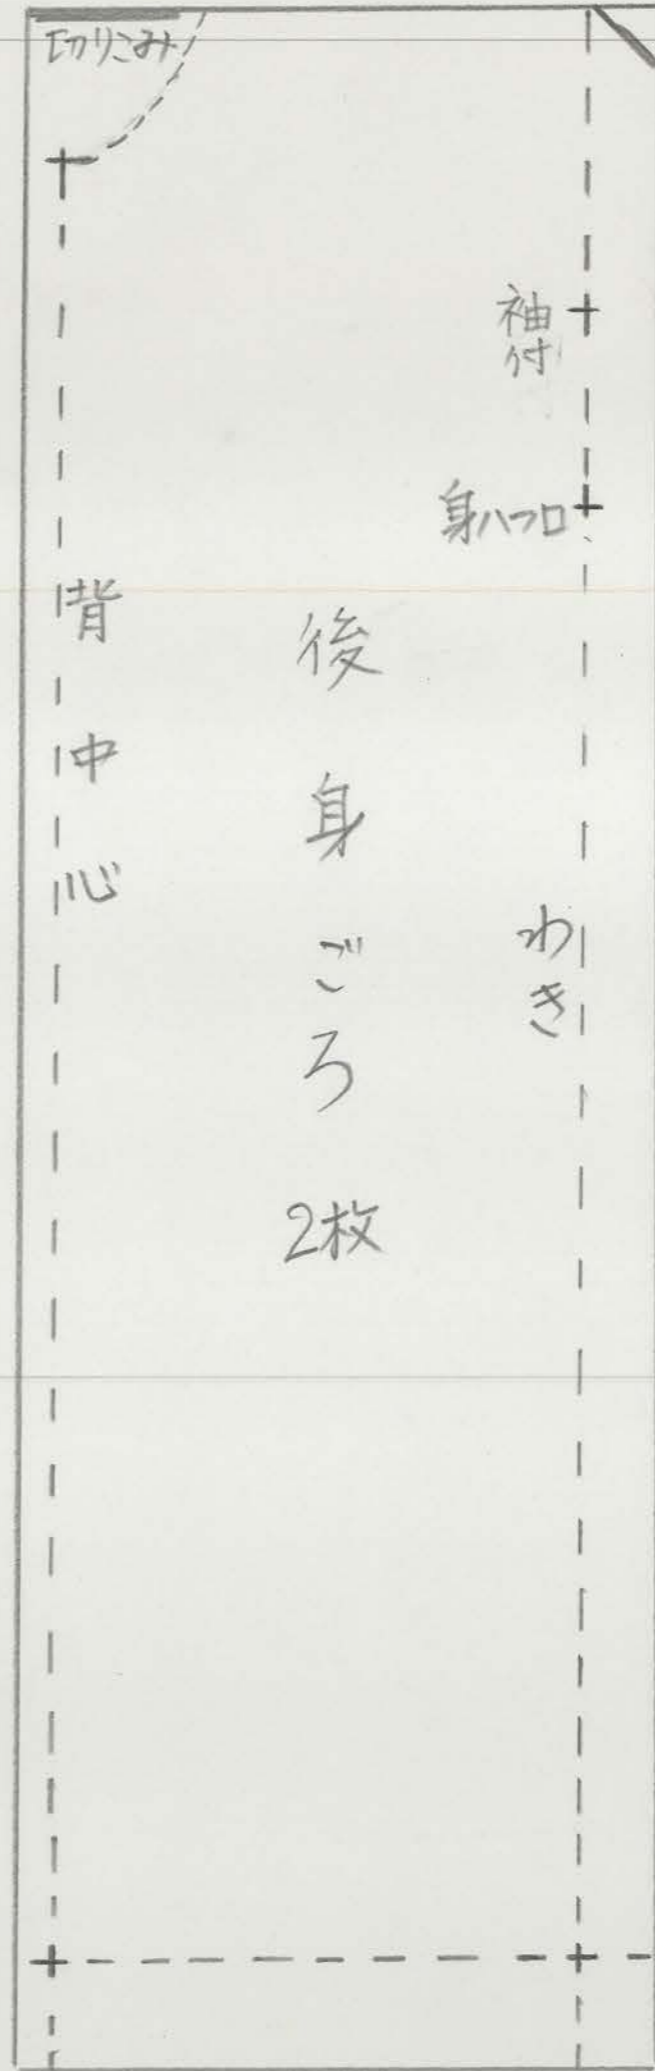 切りこみ
袖付
身八つ口
背中心
後身ごろ
2枚
わき